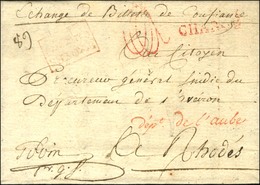 Echange de Billets de Confiance
89
CH
Au Citoyen
Procureur général Sindic du
Département de l'Aveiron
dépt de l'aube
A Rhodés